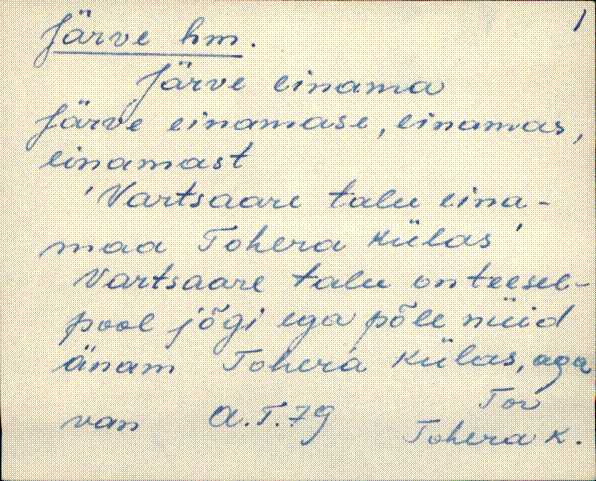 1
Järve hm.
Järve einama
Järve einamase, einamas,
einamast
'Vartsaare talu eina-
maa Tohera külas'
Vartsaare talu on teesel-
pool jõgi ega põle nüid
änam Tohera külas, aga
van A.T.79 Tor
Tohera k.